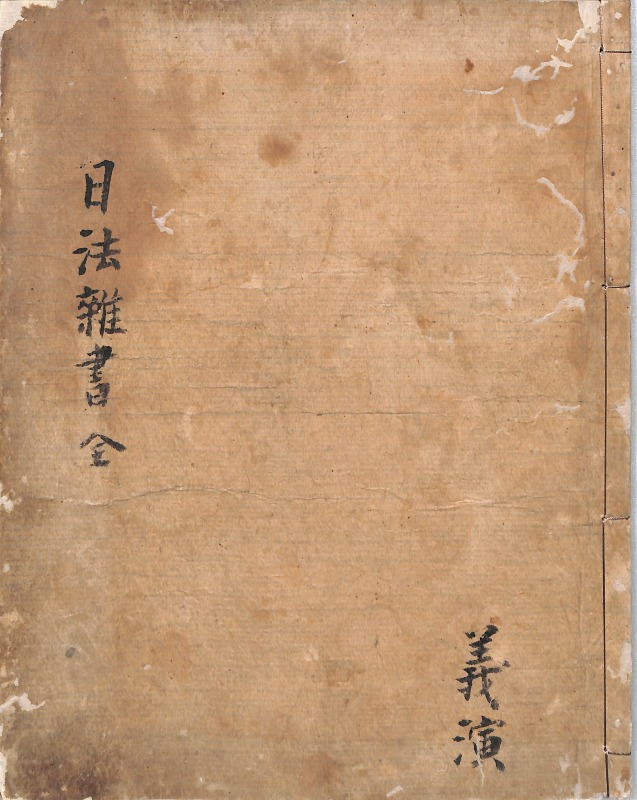 日法雜書 全
義演